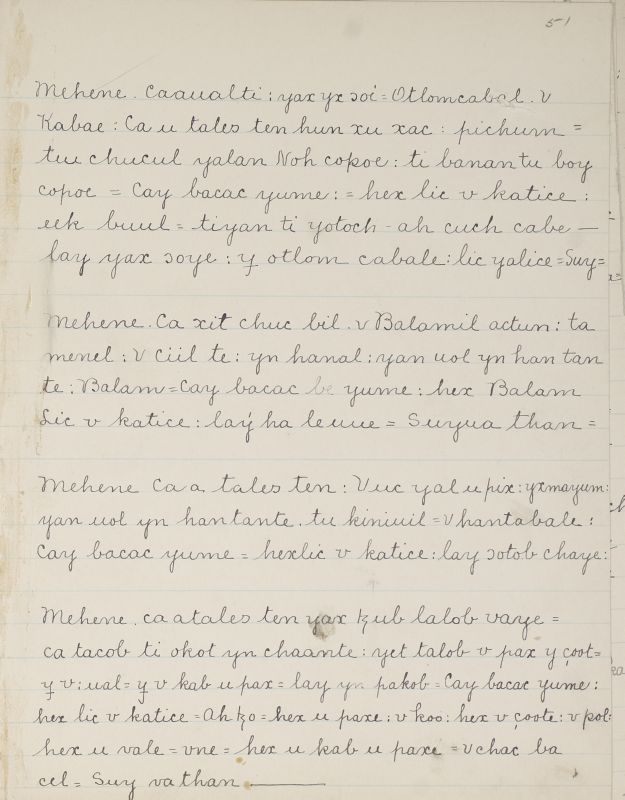 51
Mehene. Caaualti: yax yx ɔoi = Otlomcabal. V
Kabae: Ca u tales ten hun xu xac: pichum =
tuu chucul yalan Noh copoc: ti banantu boy
copoc = Cay bacac yume: = hex lic v katice:
eek buul = tiyan ti yotoch - ah cuch cabe —
lay yax ɔoye: y otlom cabale: lic yalice = Suy=
Mehene. Ca xit chuc bil. v Balamil actun: ta
menel: V Ciil te: yn hanal: yan uol yn han tan
te: Balam = Cay bacac be yume: hex Balam
Lic v katice: laý ha leuue = Suyua than =
Mehene Ca a tales ten: Vuc yal u pix: yxmayum:
yan uol yn hantante. tu kiniuil = V hantabale:
Cay bacac yume = hexlic v katice: lay ɔotob chaye:
Mehene. ca atales ten yax ꜩub lalob vaye =
ca tacob ti okot yn chaante: yet talob v pax y çoot=
y v: ual = y v kab u pax = lay yn pakob = Cay bacac yume:
hex lic v katice = Ah ꜩo = hex u paxe: v koo: hex v çoote: v pol:
hex u vale = vne = hex u kab u paxe = V chac ba
cel = Suy va than ———